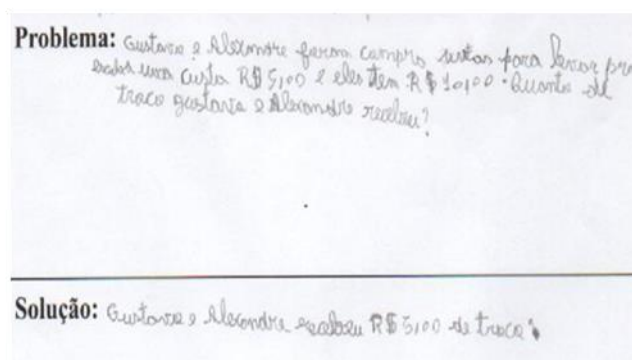 Problema: Gustavo e Alexandre foram compra sustas para levar pro
cada uma custa R$ 5,00 e eles tem R$ 10,00. Quanto de
troco gustavo e Alexandre recebeu?
Solução: Gustavo e Alexandre recebeu R$ 5,00 de troco.